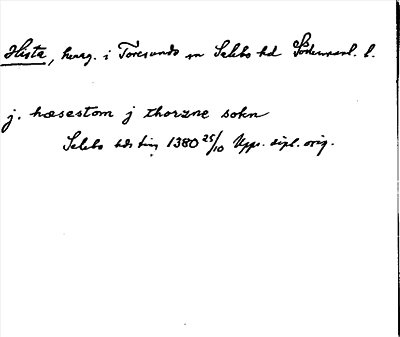 Hista, herrg. i Toresunds sn Selebo hd Södermanl. l.
j. hæsestom j thorzne sokn
Selebo hds ting 1380 25/10 Upps. dipl. orig.